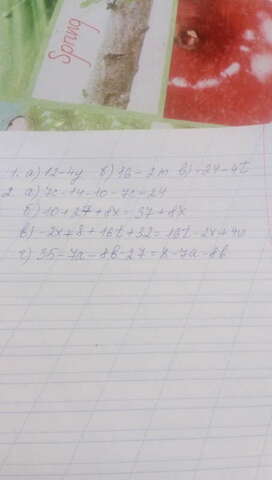 Spring
1. а) 12-4y б) 16-2m в) -24-4t
2. а) 7c-14-10-7c=24
б) 10+27+8x=37+8x
в) -2x+8+16t+32=16t-2x+40
г) 35-7a-8b-27=8-7a-8b